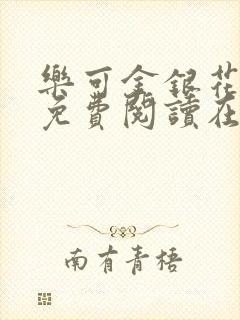 樂可金銀花
免費閱讀在
南有青梧